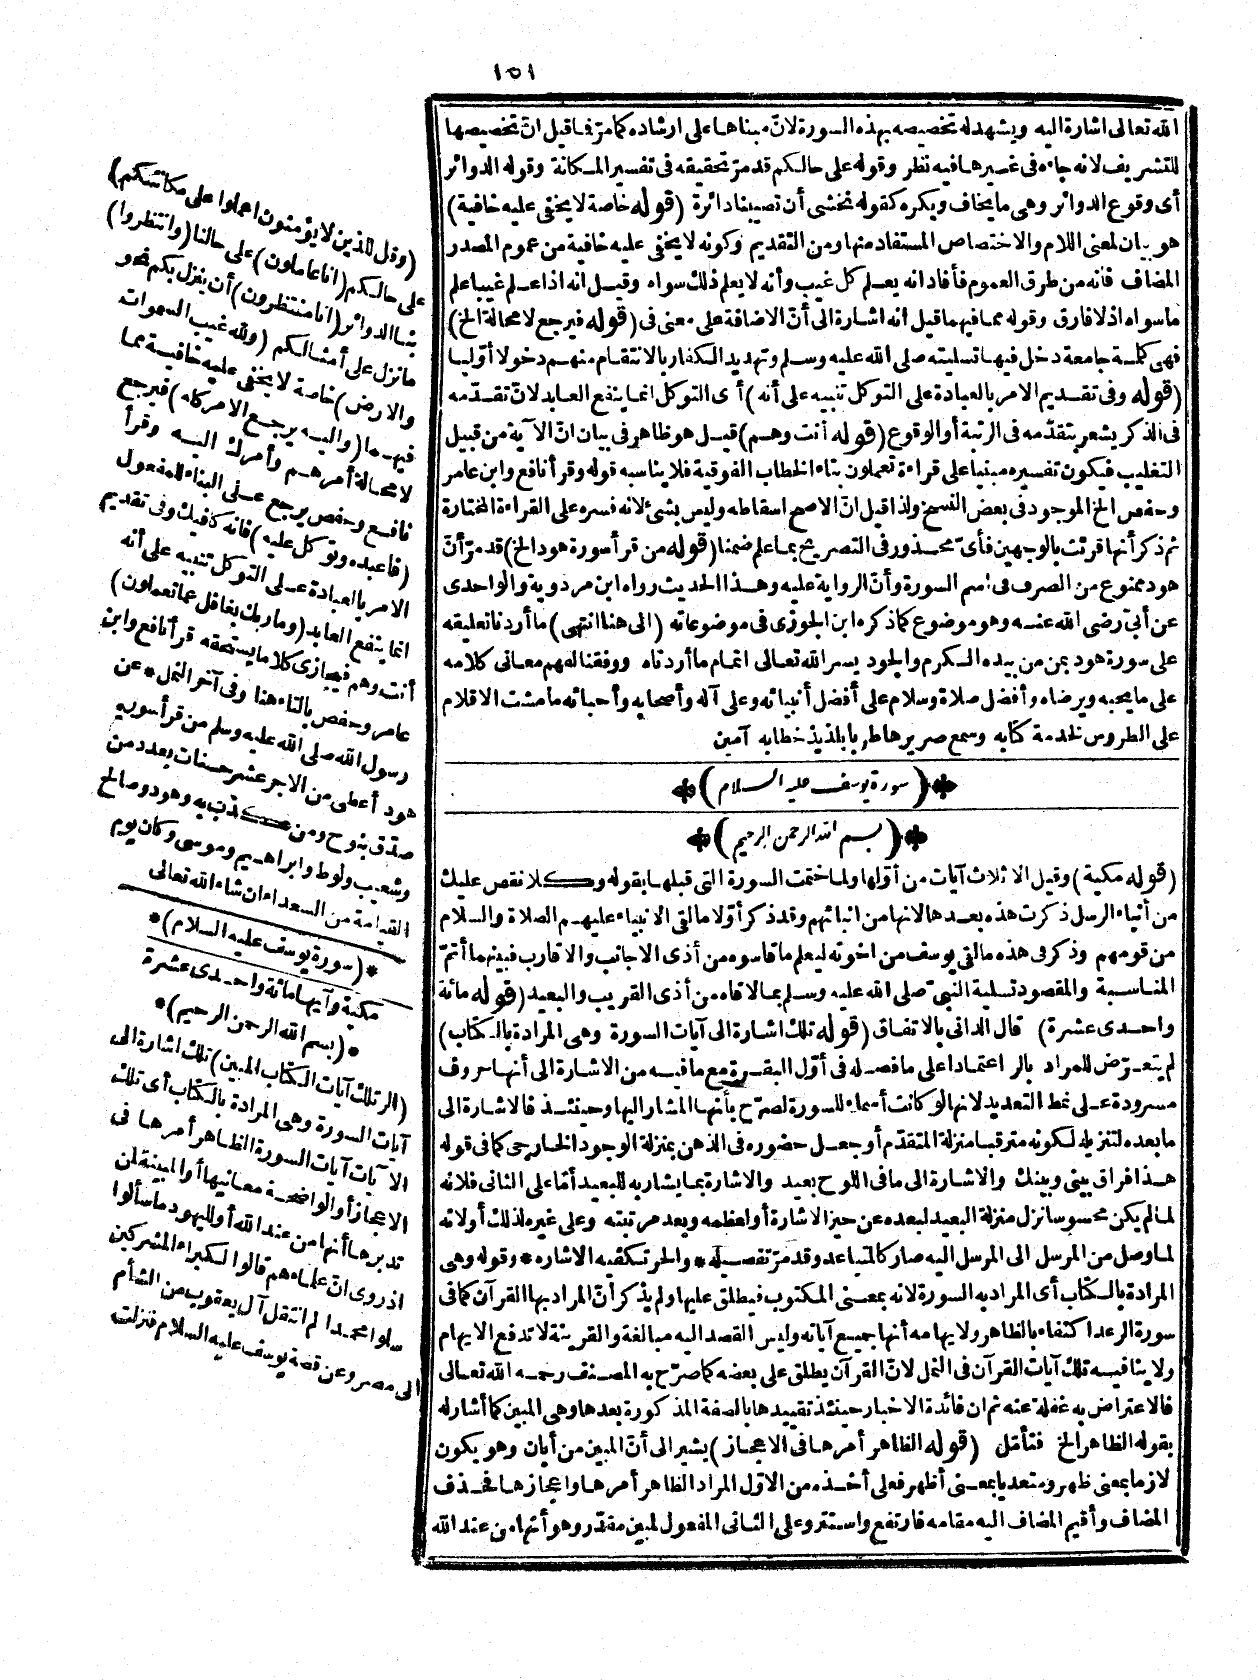 ١٥١
الله تعالى اشارة اليه ويشهد له تخصيصه بهذه السورة لانّ مبناها على ارشاده كما مرّ فما قيل انّ تخصيصها
للتشريف لانه جاء فى غيرها فيه نظر وقوله على حالكم قد مرّ تحقيقه فى تفسير المكانة وقوله الدوائر
أى وقوع الدوائر وهى ما يخاف ويكره كقوله نخشى أن تصيبنا دائرة (قوله خاصة لا يخفى عليه خافية)
هو بيان لمعنى اللام والاختصاص المستفاد منها ومن التقديم وكونه لا يخفى عليه خافية من عموم المصدر
المضاف فانه من طرق العموم فأفاد انه يعلم كل غيب وأنه لا يعلم ذلك سواه وقيل انه اذا علم غيبها علم
ما سواه اذ لا فارق وقوله مما فيهما قيل انه اشارة الى أنّ الاضافة على معنى فى (قوله فيرجع لا محالة الخ)
فهى كلمة جامعة دخل فيها تسليته صلى الله عليه وسلم وتهديد الكفار بالانتقام منهم دخولا أوّليا
(قوله وفى تقديم الامر بالعبادة على التوكل تنبيه على أنه) أى التوكل انما ينفع العابد لانّ تقدّمه
فى الذكر يشعر بتقدّمه فى الرتبة أو الوقوع (قوله أنت وهم) قيل هو ظاهر فى بيان انّ الآية من قبيل
التغليب فيكون تفسيره مبنيا على قراءة تعملون بتاء الخطاب الفوقية فلا يناسبه قوله وقرأ نافع وابن عامر
وحفص الخ الموجود فى بعض النسخ ولذا قيل انّ الاصح اسقاطه وليس بشئ لانه فسره على القراءة المختارة
ثم ذكر أنها قرئت بالوجهين فأىّ محذور فى التصريح بما علم ضمنا (قوله من قرأ سورة هود الخ) قد مرّ أنّ
هود ممنوع من الصرف فى اسم السورة وأنّ الرواية عليه وهذا الحديث رواه ابن مردوية والواحدى
عن أبىّ رضى الله عنه وهو موضوع كما ذكره ابن الجوزى فى موضوعاته (الى هنا انتهى) ما أردنا تعليقه
على سورة هود بمن من بيده الكرم والجود يسر الله تعالى اتمام ما أردناه ووفقنا لفهم معانى كلامه
على ما يحبه ويرضاه وأفضل صلاة وسلام على أفضل أنبيائه وعلى آله وأصحابه وأحبائه ما مشت الاقلام
على الطروس لخدمة كتابه وسمع صريرها طربا بلذيذ خطابه آمين
(سورة يوسف عليه السلام)
(بسم الله الرحمن الرحيم)
(قوله مكية) وقيل الا ثلاث آيات من أوّلها ولما ختمت السورة التى قبلها بقوله وكلا نقص عليك
من أنباء الرسل ذكرت هذه بعدها لانها من انبائهم وقد ذكر أوّلا ما لقى الانبياء عليهم الصلاة والسلام
من قومهم وذكر فى هذه ما لقى يوسف من اخوته ليعلم ما قاسوه من أذى الاجانب والاقارب فبينهما أتمّ
المناسبة والمقصود تسلية النبىّ صلى الله عليه وسلم بما لاقاه من أذى القريب والبعيد (قوله مائة
واحدى عشرة) قال الدانى بالاتفاق (قوله تلك اشارة الى آيات السورة وهى المرادة بالكتاب)
لم يتعرّض للمراد بالر اعتمادا على ما فصله فى أوّل البقرة مع ما فيه من الاشارة الى أنها حروف
مسرودة على نمط التعديد لانها لو كانت أسماء للسورة لصرّح بأنها المشار اليها وحينئذ فالاشارة الى
ما بعده لتنزيله لكونه مترقبا منزلة المتقدّم أو جعل حضوره فى الذهن بمنزلة الوجود الخارجى كما فى قوله
هذا فراق بينى وبينك والاشارة الى ما فى اللوح بعيد والاشارة بما يشار به للبعيد أمّا على الثانى فلانه
لما لم يكن محسوسا نزل منزلة البعيد لبعده عن حيز الاشارة أو لعظمه وبعد مرتبته وعلى غيره لذلك أو لانه
لما وصل من المرسل الى المرسل اليه صار كالمتباعد وقد مرّ تفصيله * والحر تكفيه الاشاره * وقوله وهى
المرادة بالكتاب أى المراد به السورة لانه بمعنى المكتوب فيطلق عليها ولم يذكر أنّ المراد بها القرآن كما فى
سورة الرعد اكتفاء بالظاهر ولايهامه أنها جميع آياته وليس القصد اليه مبالغة والقرينة لا تدفع الايهام
ولا ينافيه تلك آيات القرآن فى النمل لانّ القرآن يطلق على بعضه كما صرّح به المصنف رحمه الله تعالى
فالاعتراض به غفلة عنه ثم ان فائدة الاخبار حينئذ تقييدها بالصفة المذكورة بعدها وهى المبين كما أشار له
بقوله الظاهر الخ فتأمّل (قوله الظاهر أمرها فى الاعجاز) يشير الى أنّ المبين من أبان وهو يكون
لازما بمعنى ظهر ومتعديا بمعنى أظهر فعلى أخذه من الاوّل المراد الظاهر أمرها واعجازها فحذف
المضاف وأقيم المضاف اليه مقامه فارتفع واستتر وعلى الثانى المفعول لمبين مقدّر وهو أنها من عند الله
(وقل للذين لا يؤمنون اعملوا على مكانتكم)
على حالكم (انا عاملون) على حالنا (وانتظروا)
بنا الدوائر (انا منتظرون) أن ينزل بكم نحو
ما نزل على أمثالكم (ولله غيب السموات
والارض) خاصة لا يخفى عليه خافية مما
فيهما (واليه يرجع الامر كله) فيرجع
لا محالة أمرهم وأمرك اليه وقرأ
نافع وحفص يرجع على البناء للمفعول
(فاعبده وتوكل عليه) فانه كافيك وفى تقديم
الامر بالعبادة على التوكل تنبيه على أنه
انما ينفع العابد (وما ربك بغافل عما تعملون)
أنت وهم فيجازى كلا ما يستحقه قرأ نافع وابن
عامر وحفص بالتاء هنا وفى آخر النمل * عن
رسول الله صلى الله عليه وسلم من قرأ سورة
هود أعطى من الاجر عشر حسنات بعدد من
صدّق بنوح ومن كذب به وهود وصالح
وشعيب ولوط وابراهيم وموسى وكان يوم
القيامة من السعداء ان شاء الله تعالى
*(سورة يوسف عليه السلام)*
مكية وآيها مائة واحدى عشرة
*(بسم الله الرحمن الرحيم)*
(الر تلك آيات الكتاب المبين) تلك اشارة الى
آيات السورة وهى المرادة بالكتاب أى تلك
الآيات آيات السورة الظاهر أمرها فى
الاعجاز أو الواضحة معانيها أو المبينة لمن
تدبرها أنها من عند الله أو لليهود ما سألوا
اذ روى انّ علماءهم قالوا لكبراء المشركين
سلوا محمدا لم انتقل آل يعقوب من الشأم
الى مصر وعن قصة يوسف عليه السلام فنزلت